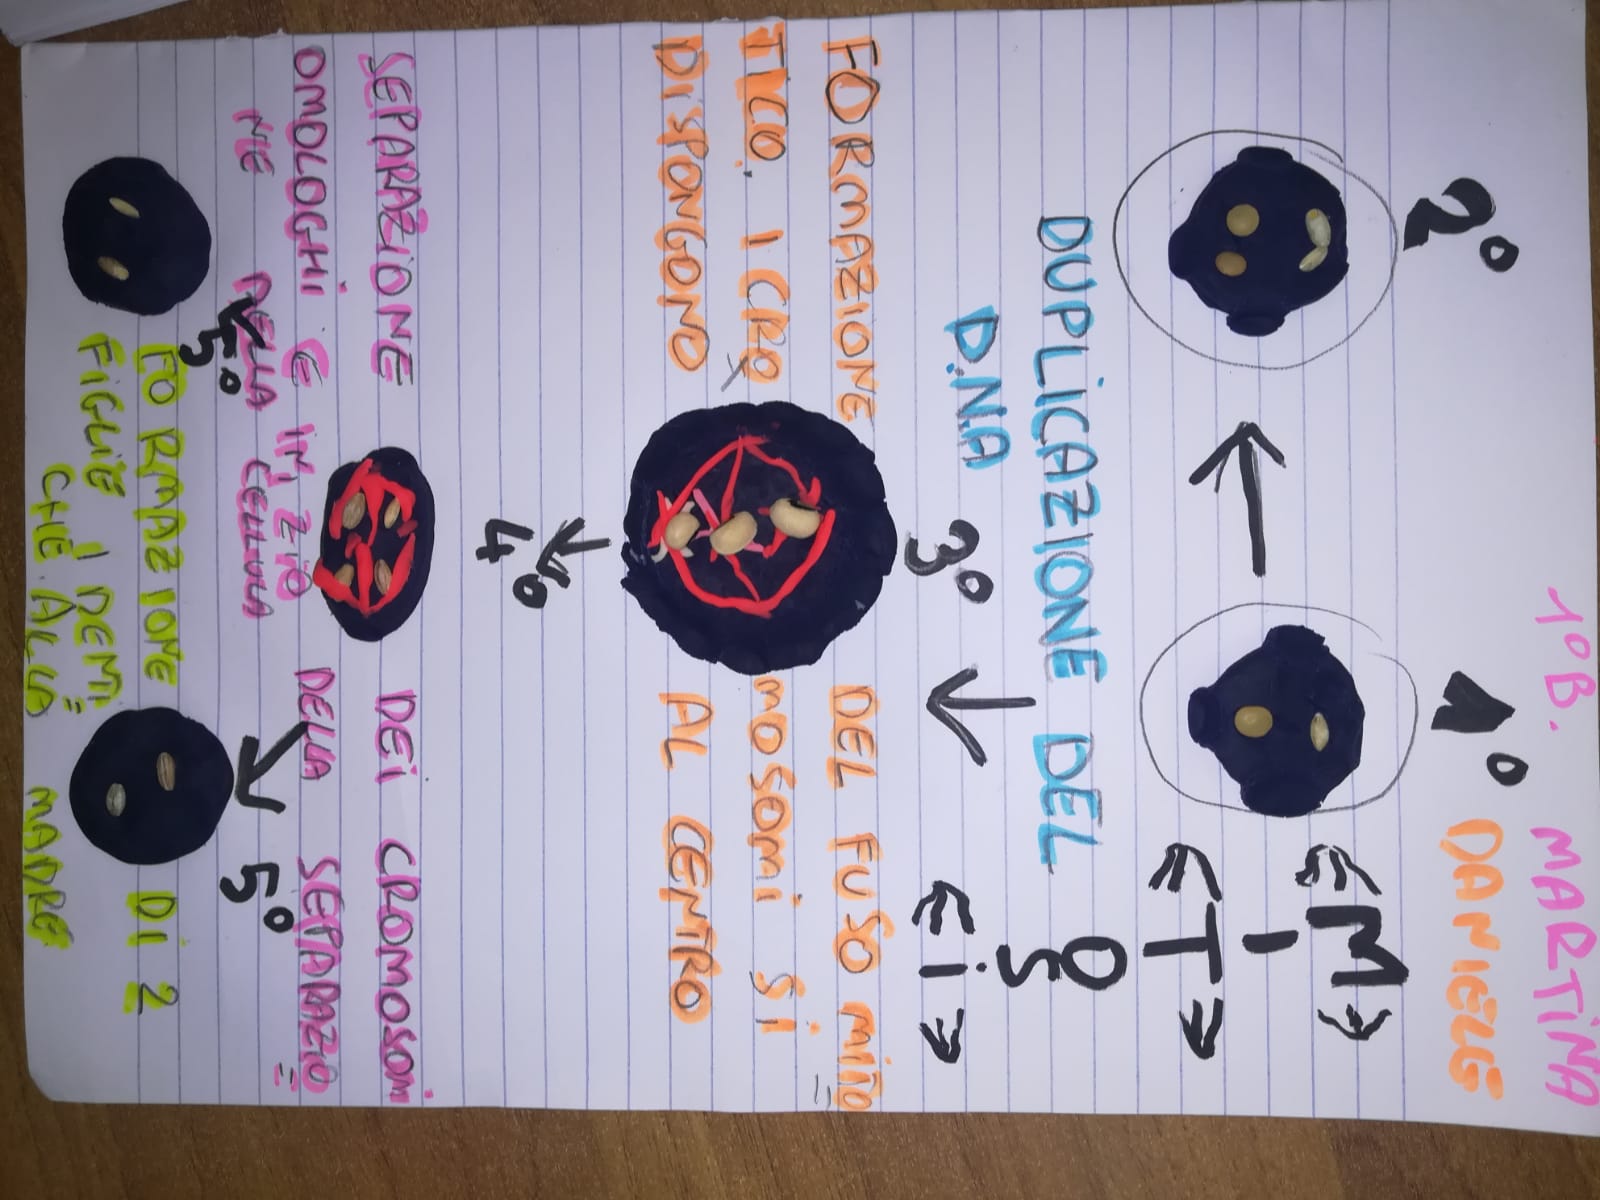 1°B. MARTINA
DANIELE
2°
1°
MITOSI
DUPLICAZIONE DEL
D.N.A
3°
FORMAZIONE DEL FUSO MITO=
TICO. I CROMOSOMI SI
DISPONGONO AL CENTRO
4°
SEPARAZIONE DEI CROMOSOMI
OMOLOGHI E INIZIO DELLA SEPARAZIO=
NE DELLA CELLULA
5° 5°
FORMAZIONE DI 2
FIGLIE IDEM=
CHE ALLA MADRE